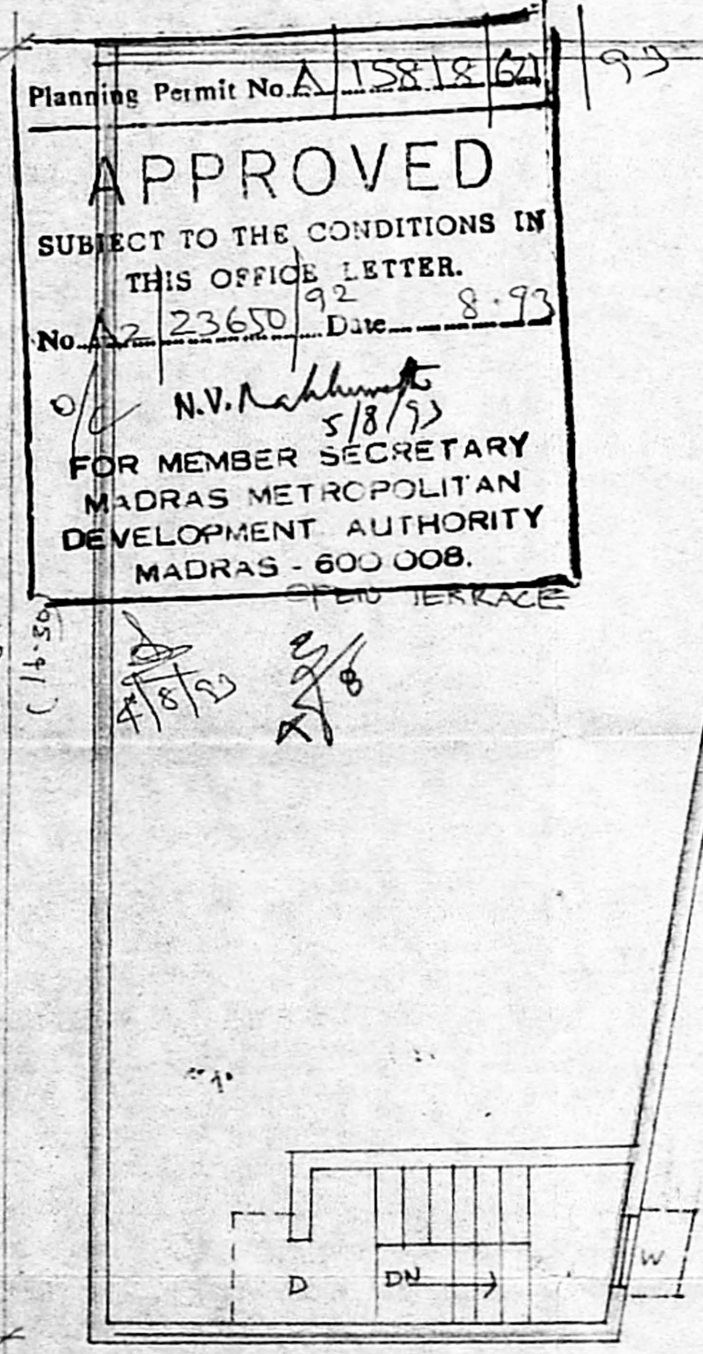 Planning Permit No. A 15818 621 / 93
APPROVED
SUBJECT TO THE CONDITIONS IN
THIS OFFICE LETTER.
No. A2 / 23650 / 92 Date 8.93
N.V.
5/8/93
FOR MEMBER SECRETARY
MADRAS METROPOLITAN
DEVELOPMENT AUTHORITY
MADRAS - 600 008.
OPEN TERRACE
4/8/93
D
DN
W